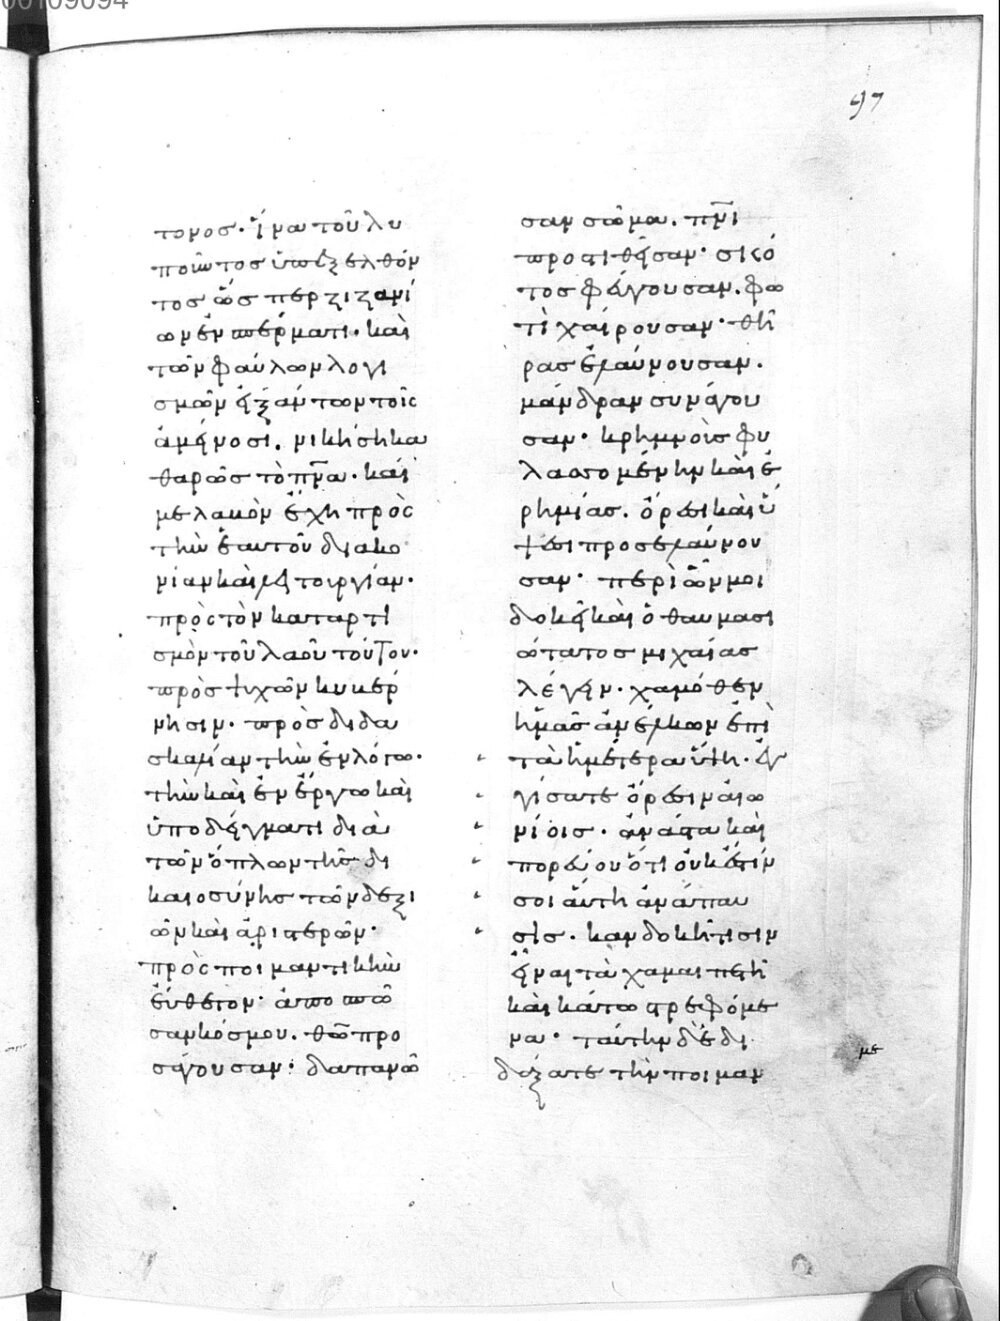 00109094
97
τονος· ἵνα τοῦ λυ
ποῦντος ὑπεξελθόν
τος ὥσπερ ζιζανί
ων ἐν σπέρματι· καὶ
τῶν φαύλων λογι
σμῶν ἐξ ἁπάντων τοῖς
ἀμείνοσι. νικήση κα
θαρῶς τὸ πνα· καὶ
μελανὸν ἔχη πρὸς
τὴν ἑαυτοῦ διακο
νίαν καὶ λειτουργίαν·
πρὸς τὸν καταρτι
σμὸν τοῦ λαοῦ τούτου·
πρὸς ψυχῶν κυβέρ
νησιν· πρὸς διδα
σκαλίαν τὴν ἐν λόγω·
τὴν καὶ ἐν ἔργω καὶ
ὑποδείγματι διὰ
τῶν ὅπλων τῆς δι
καιοσύνης τῶν δεξι
ῶν καὶ ἀριστερῶν·
πρὸς ποιμαντικὴν
εὔθετον· ἀποσπῶ
σαν κόσμου. θῶ προ
σάγουσαν· δαπανῶ
σαν σῶμα. πνι
προστιθεῖσαν· σκό
τος φεύγουσαν. φω
τὶ χαίρουσαν· θῆ
ρας ἐλαύνουσαν.
μάνδραν συνάγου
σαν· κρημνοὺς φυ
λασσομένην καὶ ἐ
ρημίας. ὄρεσι καὶ ὕ
ψεσι προσελαύνου
σαν· περὶ ὧν μοι
δοκεῖ καὶ ὁ θαυμασι
ώτατος μιχαίας
λέγειν· χαμόθεν
ἡμᾶς ἀνέλκων ἐπὶ
τὰ ἡμέτερα ὕψη· ἐγ
γίσατε ὄρεσιν αἰω
νίοις· ἀνάστα καὶ
πορεύου ὅτι οὐκ ἔστιν
σοι αὕτη ἀνάπαυ
σις· κἂν δοκῆ τισιν
εἶναι τὰ χαμαιπετῆ
καὶ κάτω στρεφόμε
να· ταύτην δὲ ἐδι
δάξατε τὴν ποιμαν
με